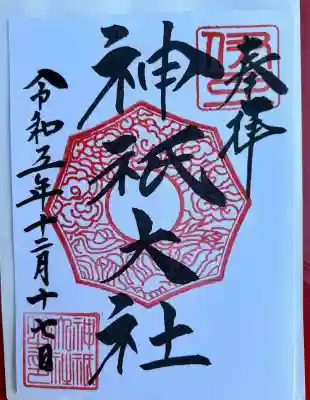 奉拝
神祇大社
令和五年十二月十七日